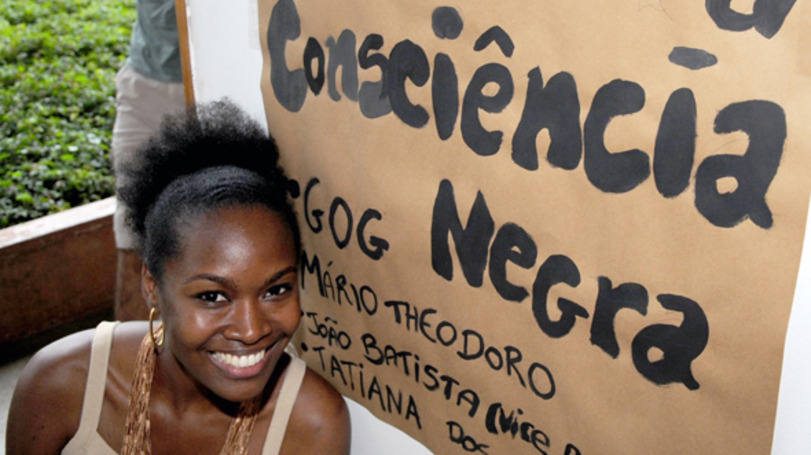 Consciência
Negra
• GOG
MÁRIO THEODORO
• JOÃO BATISTA (Vice
• TATIANA DOS